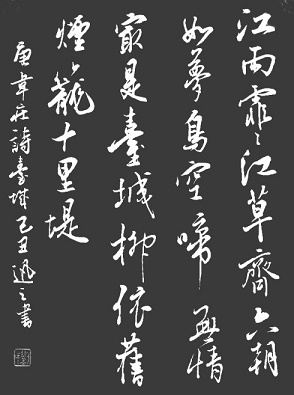 江雨霏霏江草齊六朝
如夢鳥空啼無情
最是臺城柳依舊
煙籠十里堤
唐韋莊詩臺城己丑迅之書